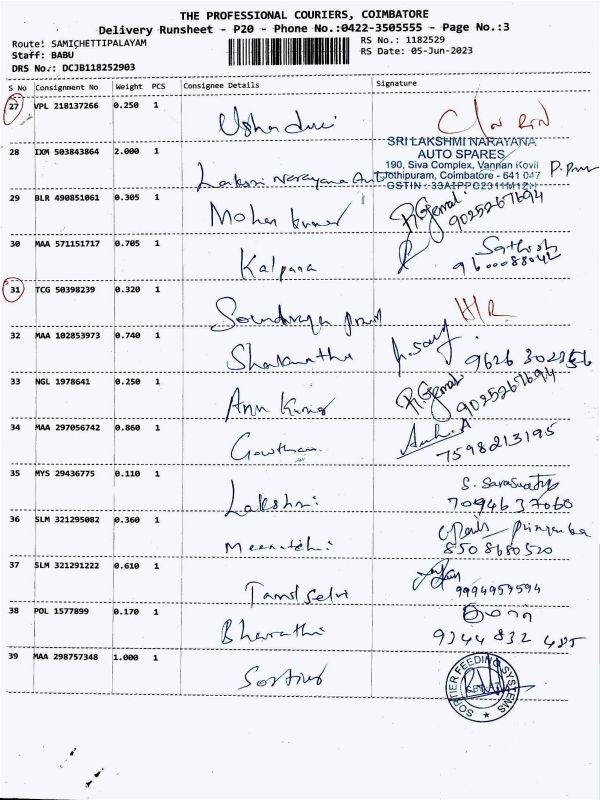 THE PROFESSIONAL COURIERS, COIMBATORE
Delivery Runsheet - P20 - Phone No.:0422-3505555 - Page No.:3
Route: SAMICHETTIPALAYAM RS No.: 1182529
Staff: BABU RS Date: 05-Jun-2023
DRS No.: DCJB118252903
S No Consignment No Weight PCS Consignee Details Signature
27 VPL 218137266 0.250 1
Usha devi
28 IXM 503843864 2.000 1 SRI LAKSHMI NARAYANA
AUTO SPARES
190, Siva Complex, Vannan Kovil
Lakshmi Narayana Auto Jothipuram, Coimbatore - 641 047
GSTIN : 33AIPPC2311M1ZH
29 BLR 490851061 0.305 1
Mohan Kumar 9025267694
30 MAA 571151717 0.705 1 Sathish
Kalpana 9600088042
31 TCG 50398239 0.320 1
Soundarya
32 MAA 102853973 0.740 1
Shakunthu 9626302256
33 NGL 1978641 0.250 1
Arun Kumar 9025267694
34 MAA 297056742 0.860 1
Gowtham 7598213195
35 MYS 29436775 0.110 1 S. Saraswathy
Lakshmi 7094637060
36 SLM 321295082 0.360 1 Priyanka
Meenatchi 8508680520
37 SLM 321291222 0.610 1
Tamilselvi 9994959594
38 POL 1577899 0.170 1
Bharathi 9344832485
39 MAA 298757348 1.000 1
Sortier SORTIER FEEDING SYSTEMS